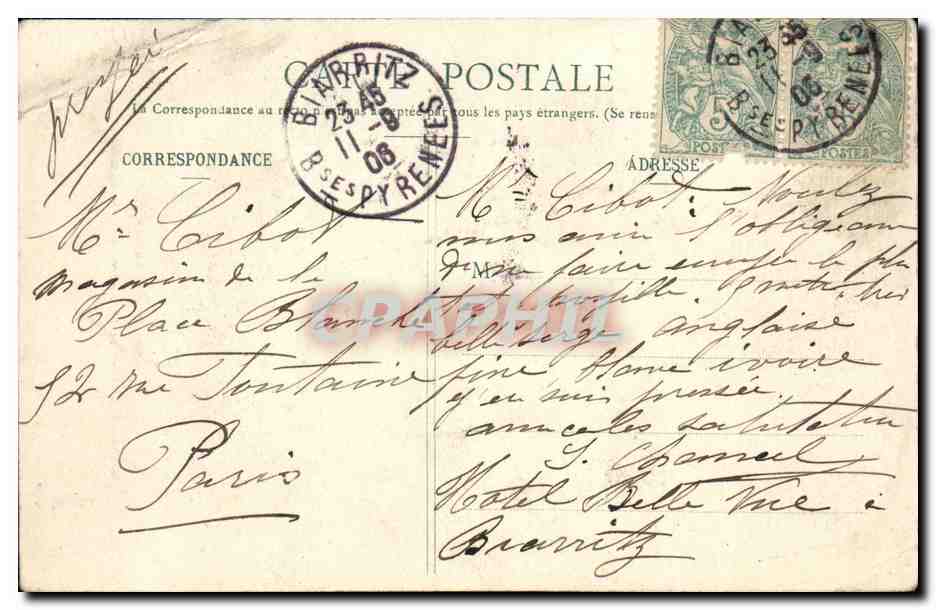 pressé
CARTE POSTALE
La Correspondance au recto n'est pas acceptée par tous les pays étrangers. (Se rens
CORRESPONDANCE
ADRESSE
BIARRITZ
23 45
11 -9
06
BSES PYRENEES
BIARRITZ
23 45
11 -9
06
BSES PYRENEES
5
POSTES
Mr Cibot
magasin de la
Place Blanche
52 rue Fontaine
Paris
M
M Cibot: Voulez
avoir l'obligean
de me faire le plu
5 metre
serge anglaise
fine blanc ivoire
j'en suis pressée.
salutation
Hotel Belle Vue à
Biarritz
CPAPHIL